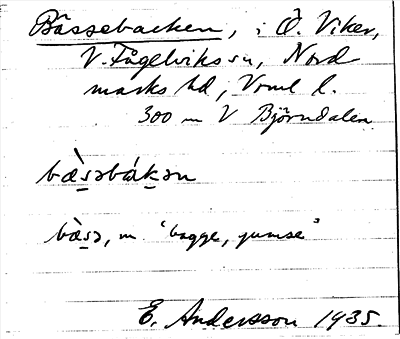 Bässebacken, i Ö. Viker,
V. Fågelviks sn, Nord
marks hd, Vrml l.
300 m V Björndalen
bæ̀s̠əbák̠ən
bæ̀s̠ə, m. "bagge, gumse"
E. Andersson 1935.